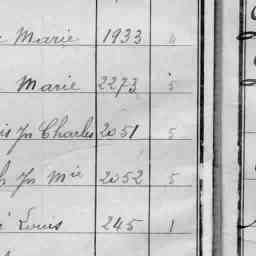 Marie 1933 4
Marie 2273 5
is Jn Charles 2051 5
h Jn Mie 2052 5
Louis 245 1